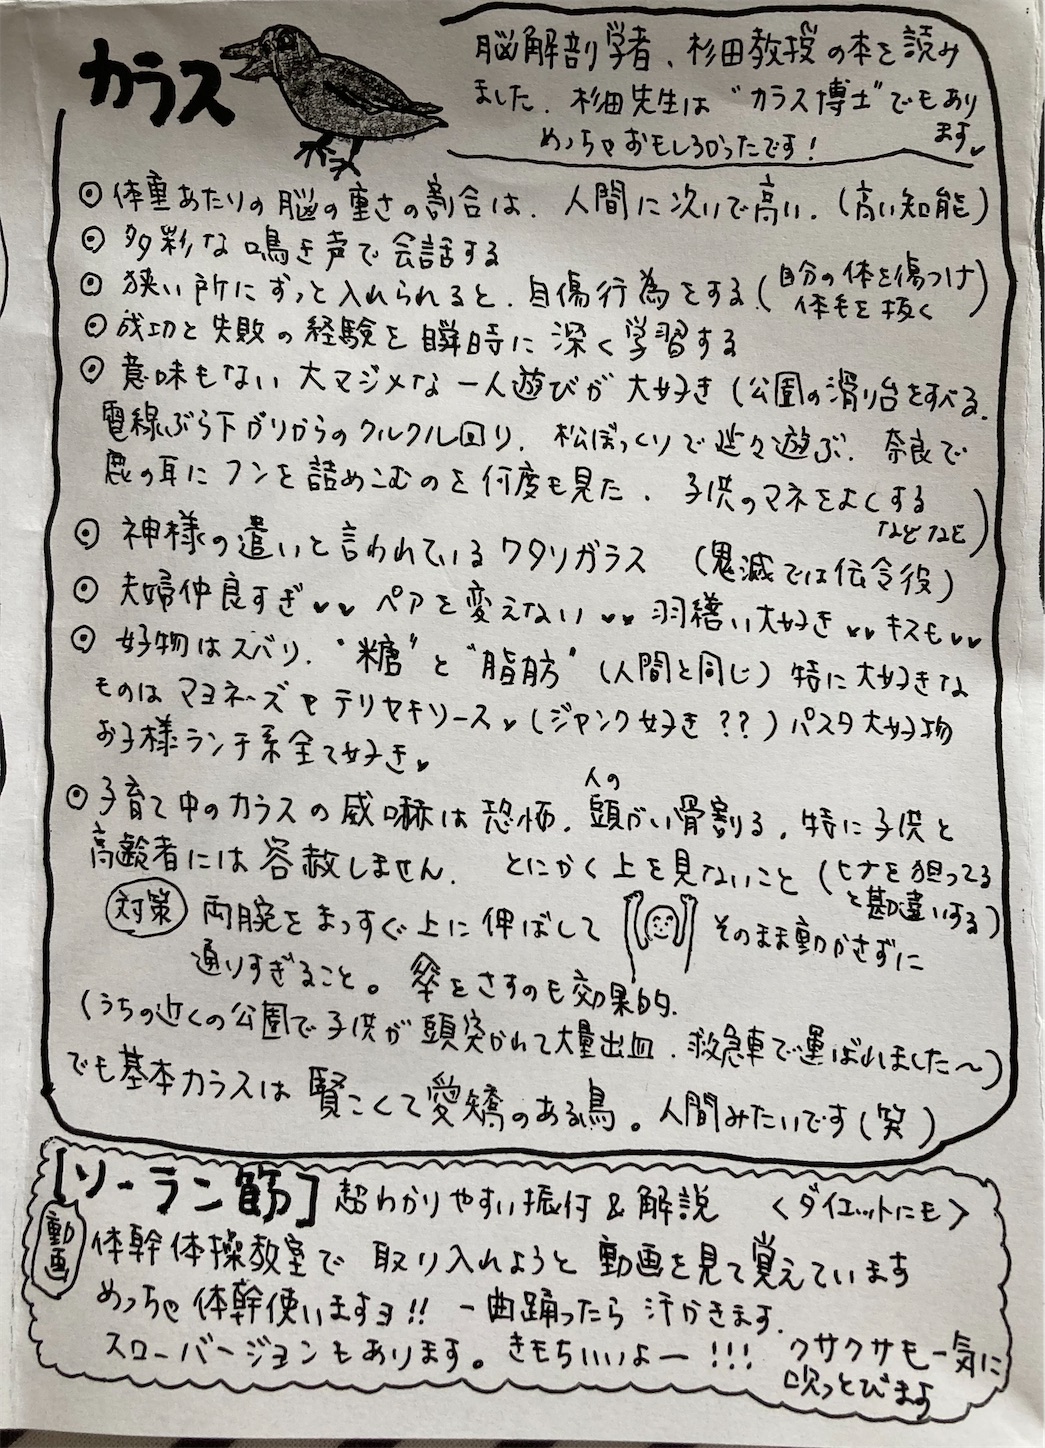 カラス
脳解剖学者、杉田教授の本を読み
ました。杉田先生は"カラス博士"でもあり
ます
めっちゃおもしろかったです!
◎体重あたりの脳の重さの割合は、人間に次いで高い。(高い知能)
◎多彩な鳴き声で会話する
◎狭い所にずっと入れられると、自傷行為をする(自分の体を傷つけ
体毛を抜く)
◎成功と失敗の経験を瞬時に深く学習する
◎意味もない大マジメな一人遊びが大好き(公園の滑り台をすべる。
電線ぶら下がりからのクルクル回り、松ぼっくりで延々遊ぶ、奈良で
鹿の耳にフンを詰めこむのを何度も見た、子供のマネをよくする
などなど)
◎神様の遣いと言われているワタリガラス (鬼滅では伝令役)
◎夫婦仲良すぎ♥♥ ペアを変えない♥♥ 羽繕い大好き♥♥ キスも♥♥
◎好物はズバリ、"糖"と"脂肪"(人間と同じ)特に大好きな
ものはマヨネーズやテリヤキソース♥(ジャンク好き??)パスタ大好物
お子様ランチ系全て好き♥
人の
◎子育て中のカラスの威嚇は恐怖。頭がい骨割る。特に子供と
高齢者には容赦しません。 とにかく上を見ないこと(ヒナを狙ってる
と勘違いする)
対策 両腕をまっすぐ上に伸ばして そのまま動かさずに
通りすぎること。傘をさすのも効果的。
(うちの近くの公園で子供が頭突かれて大量出血、救急車で運ばれました〜)
でも基本カラスは賢こくて愛矯のある鳥。人間みたいです(笑)
[ソーラン節] 超わかりやすい振付&解説 <ダイエットにも>
動画
体幹体操教室で取り入れようと動画を見て覚えています
めっちゃ体幹使いますヨ!! 一曲踊ったら汗かきます。
スローバージョンもあります。きもちいいよー!!! クサクサも一気に
吹っとびます